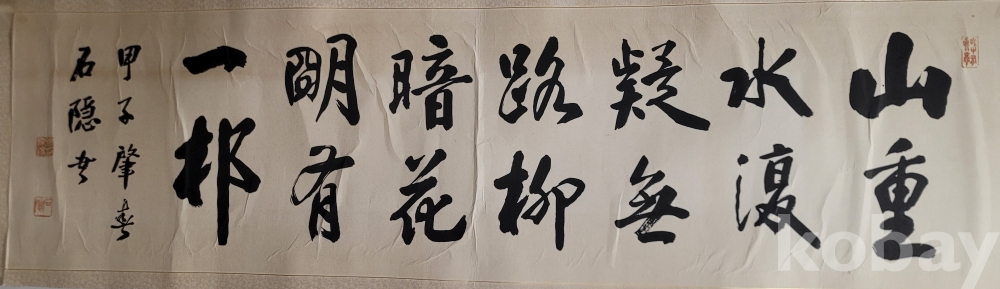 山重
水復
疑無
路柳
暗花
朙有
一邨
甲子肇春
石隱書
kobay